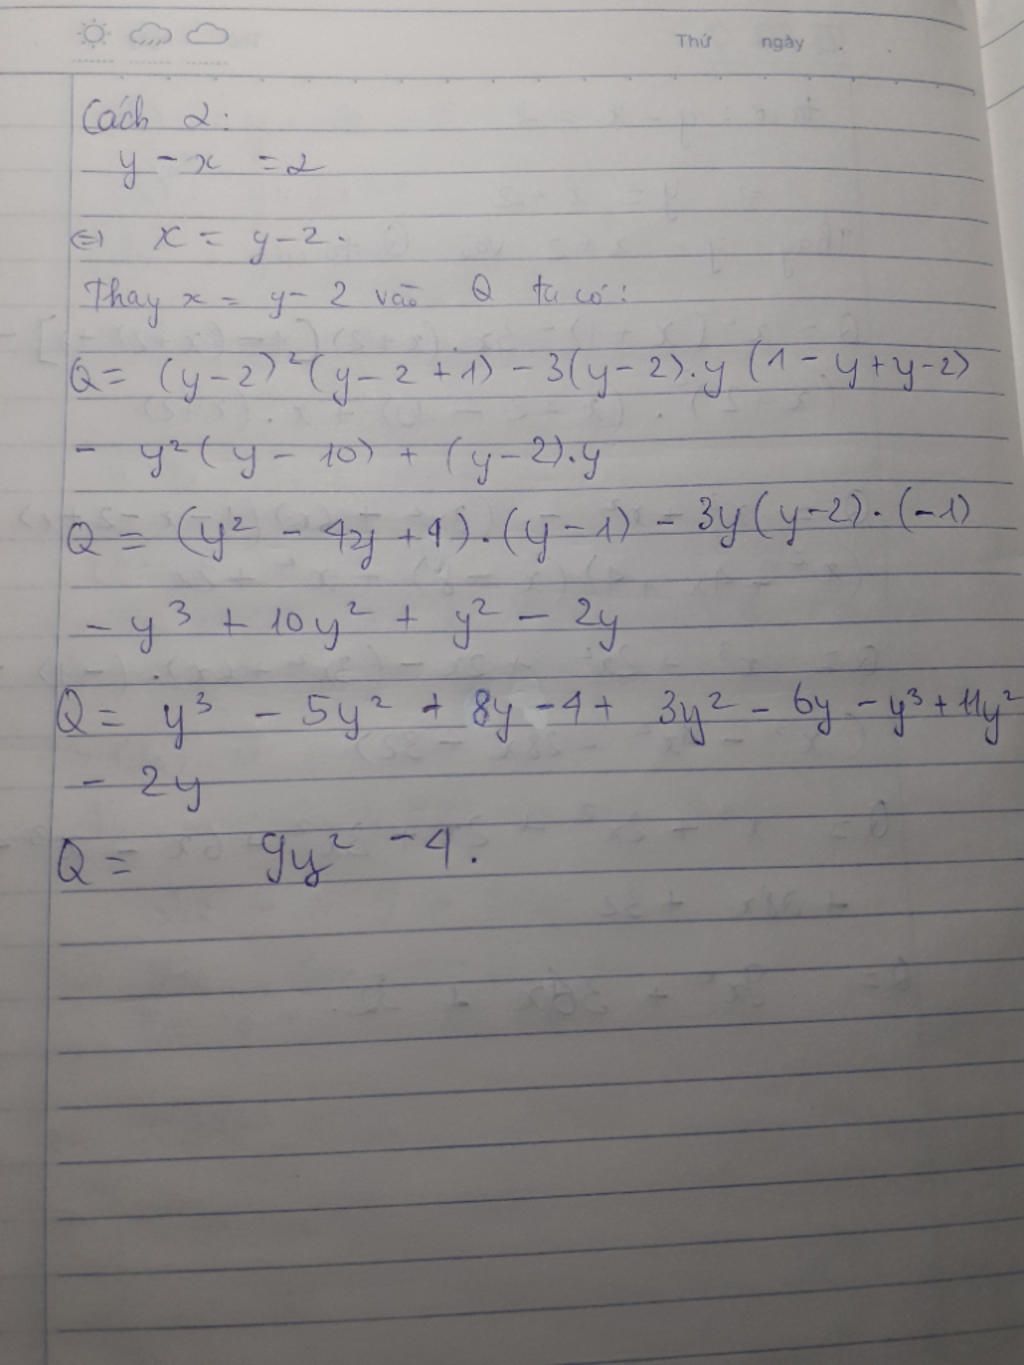 Thứ ngày . .
Cách 2:
y - x = 2
⇔ x = y - 2.
Thay x = y - 2 vào Q ta có:
Q = (y-2)²(y-2+1) - 3(y-2).y (1-y+y-2)
- y²(y-10) + (y-2).y
Q = (y² - 4y + 4).(y-1) - 3y(y-2).(-1)
- y³ + 10y² + y² - 2y
Q = y³ - 5y² + 8y - 4 + 3y² - 6y - y³ + 11y²
- 2y
Q = 9y² - 4.